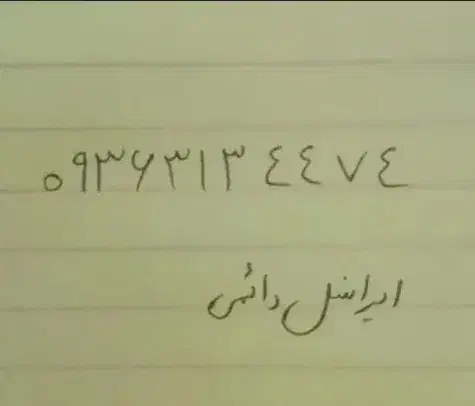 ۰۹۳۶۳۱۳۴۴۷۴
ایرانسل دائمی